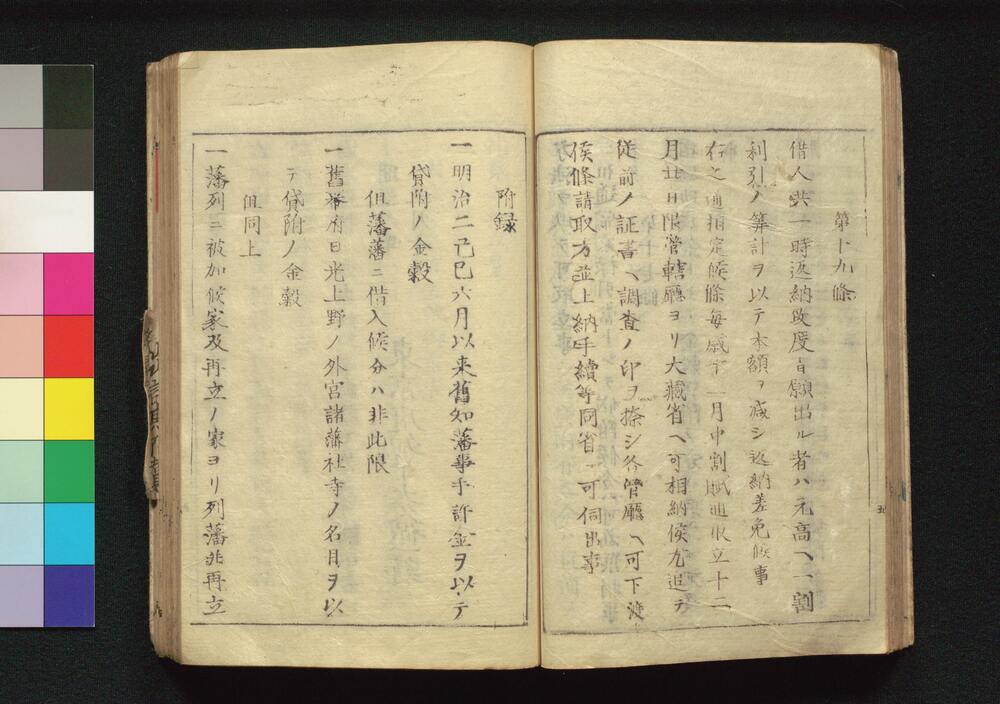 第十九條
借人共一時返納致度旨願出ル者ハ元高ヘ一割
利引ノ算計ヲ以テ本額ヲ減シ返納差免候事
右之通指定候條毎歳十一月中割賦通取立十二
月廿日限管轄廳ヨリ大藏省ヘ可相納候尤追テ
従前ノ証書ヘ調査ノ印ヲ捺シ各管廳ヘ可下渡
候條請取方並上納手續等同省ヘ可伺出事
附録
一明治二己巳六月以来舊知藩事手許金ヲ以テ
貸附ノ金穀
但藩藩ニ借入候分ハ非此限
一舊幕府日光上野ノ外宮諸藩社寺ノ名目ヲ以
テ貸附ノ金穀
但同上
一藩列ニ被加候家及再立ノ家ヨリ列藩並再立